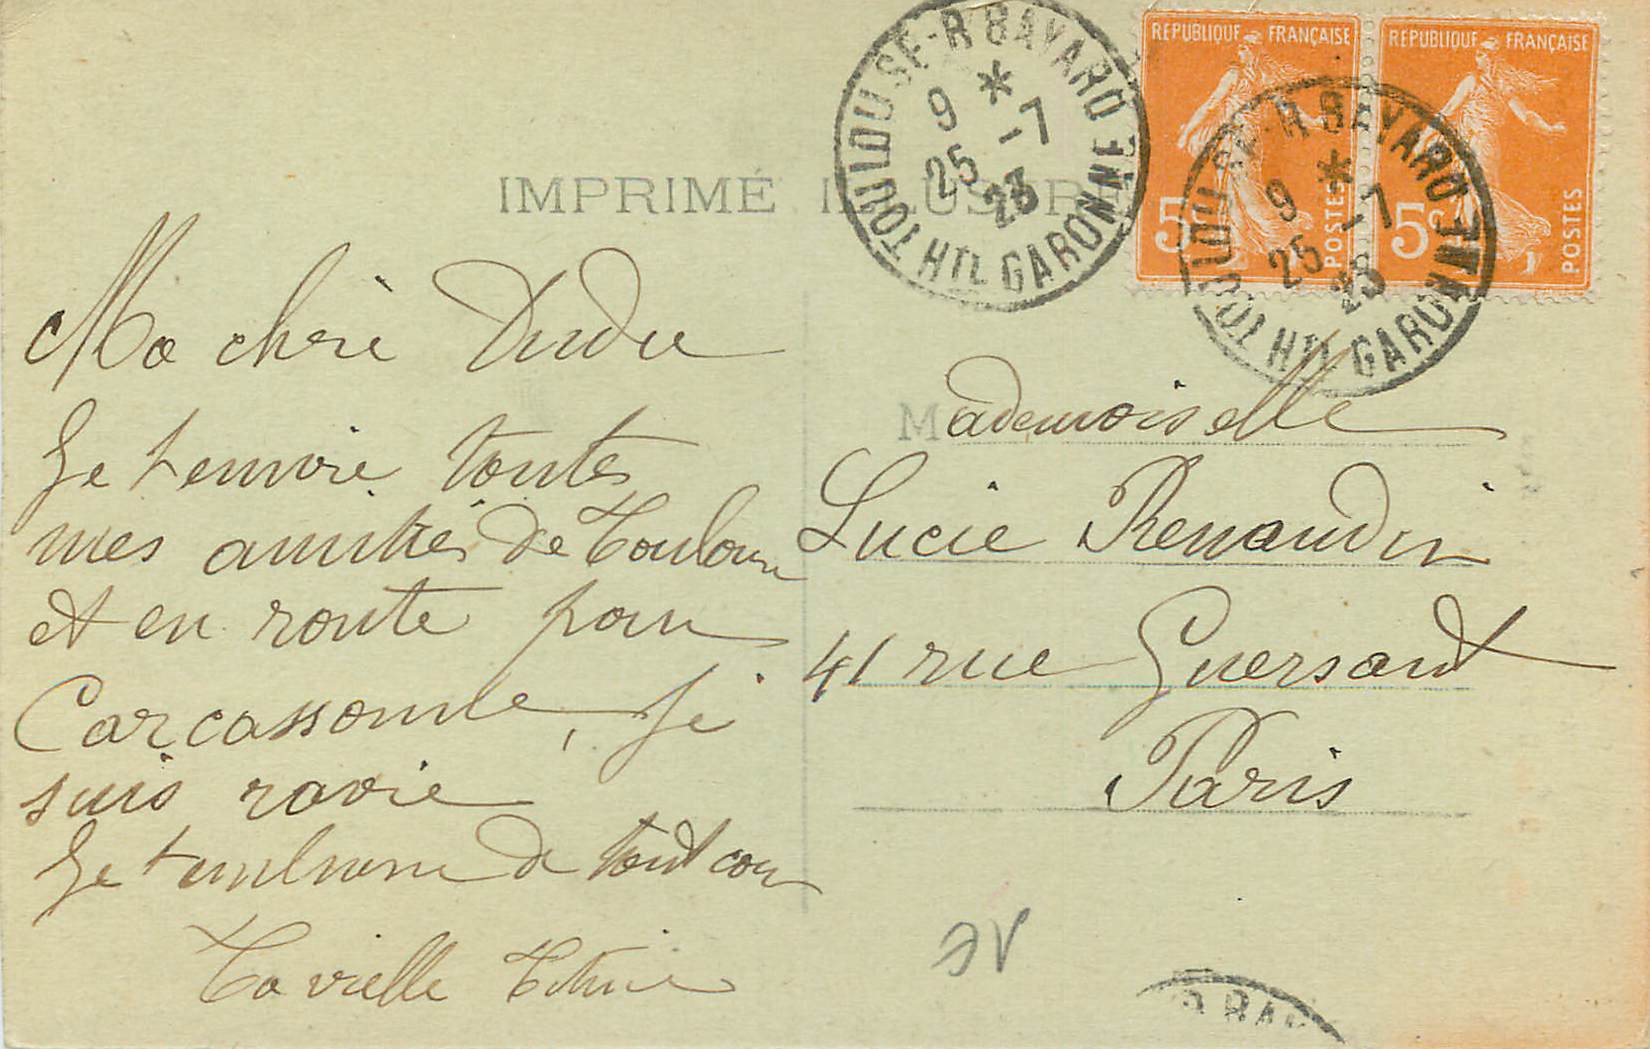 IMPRIMÉ ILLUSTRÉ
TOULOUSE-R BAYARD
9 * -7
25 23
HTE GARONNE
REPUBLIQUE FRANÇAISE
5c POSTES
REPUBLIQUE FRANÇAISE
5c POSTES
TOULOUSE-R BAYARD
9 * -7
25 23
HTE GARONNE
Ma chère Dudu
Je t'envoie toutes
mes amitiés de Toulouse
et en route pour
Carcassonne, je
suis ravie
Je t'embrasse de tout cœur
Ta vielle
Mademoiselle
Lucie Renaudin
41 rue Guersant
Paris
D BAY